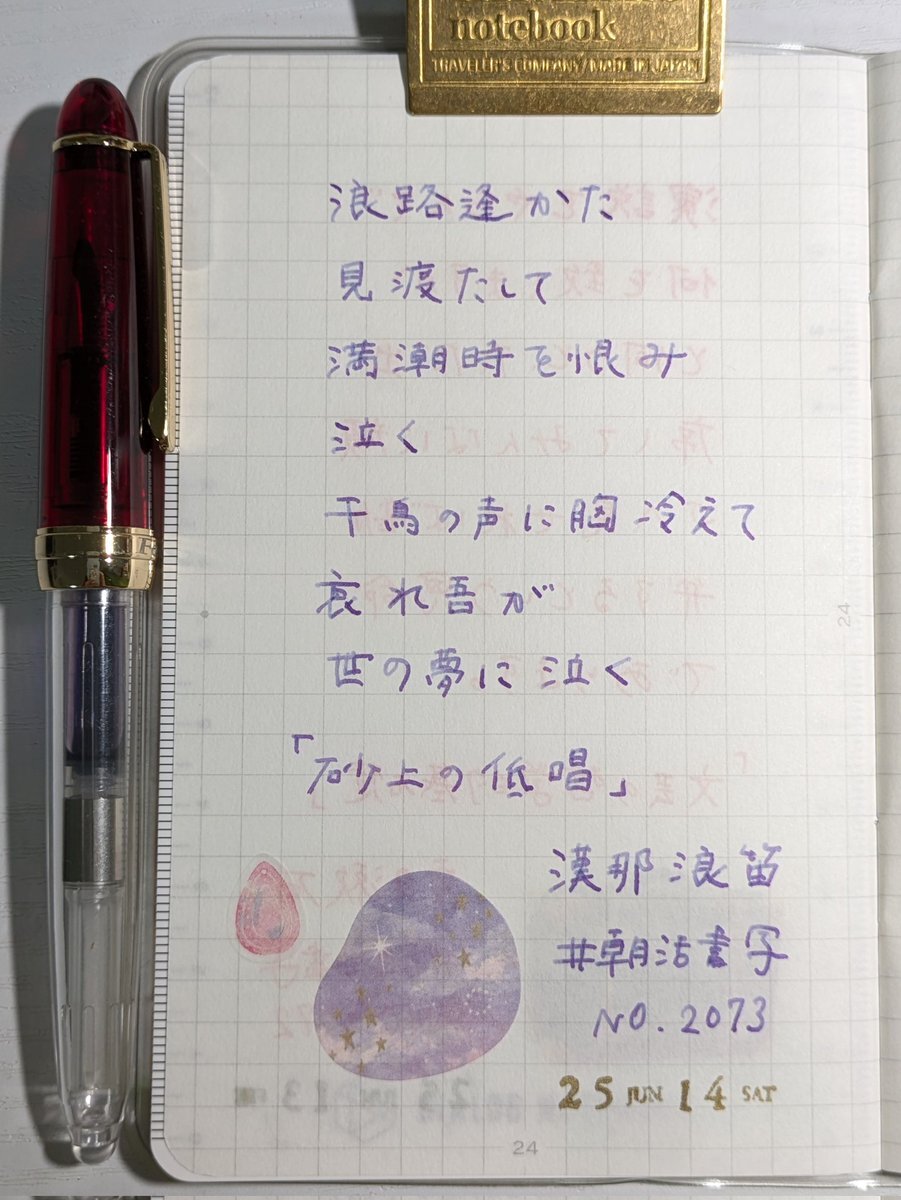 notebook
TRAVELER'S COMPANY/MADE IN JAPAN
浪路逢かた
見渡たして
満潮時を恨み
泣く
千鳥の声に胸冷えて
哀れ吾が
世の夢に泣く
「砂上の低唱」
漢那浪笛
#朝活書写
NO.2073
25 JUN 14 SAT
24
24